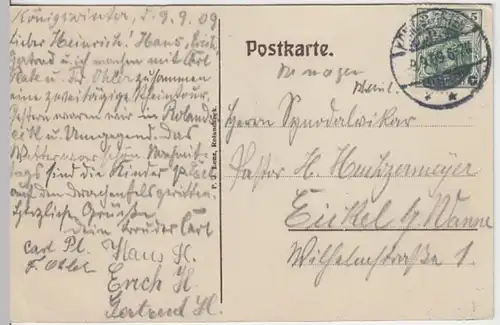 Königswinter, d. 9.9.09
Lieber Heinrich! Hans, Erich,
Gertrud u. ich machen mit Carl
u. F. Ohler zusammen
eine zweitägige Rheintour.
Gestern waren wir in Roland-
eck u. Umgegend. Das
Wetter war schön. Nachmit-
tags sind die Kinder
auf den Drachenfels geritten.
Herzliche Grüsse
Dein Bruder Carl
Carl Pl.
F. Ohler
Hans H.
Erich H.
Gertrud H.
P. C. Lenz, Rolandseck.
Postkarte.
Herrn Synodalvikar
Pastor H. Huchzermeyer
Eickel b/ Wanne
Wilhelmstraße 1.
5